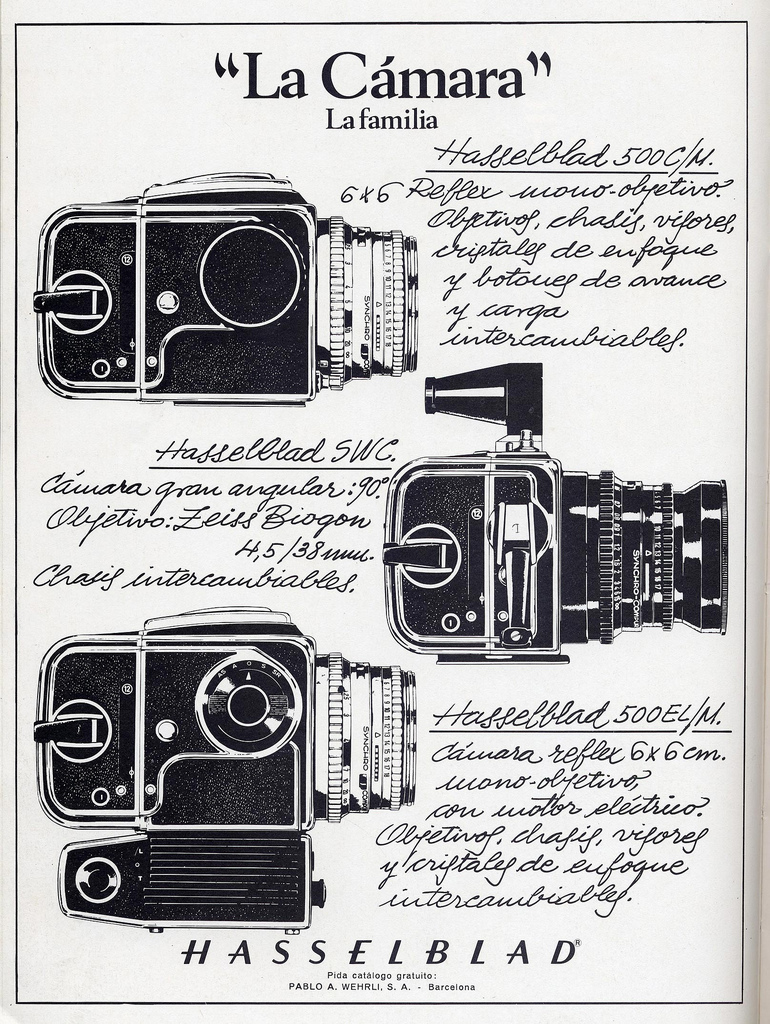 “La Cámara”
La familia
Hasselblad 500C/M.
6x6 Reflex mono-objetivo.
Objetivos, chasis, visores,
cristales de enfoque
y botones de avance
y carga
intercambiables.
12
1
SYNCHRO
Hasselblad SWC.
Cámara gran angular: 90º
Objetivo: Zeiss Biogon
4,5/38 mm.
Chasis intercambiables.
12
1
SYNCHRO-COMPUR
Hasselblad 500EL/M.
Cámara reflex 6x6 cm.
mono-objetivo,
con motor eléctrico.
Objetivos, chasis, visores
y cristales de enfoque
intercambiables.
AS A O S SR
12
1
SYNCHRO
L O T
HASSELBLAD®
Pida catálogo gratuito:
PABLO A. WEHRLI, S. A. - Barcelona